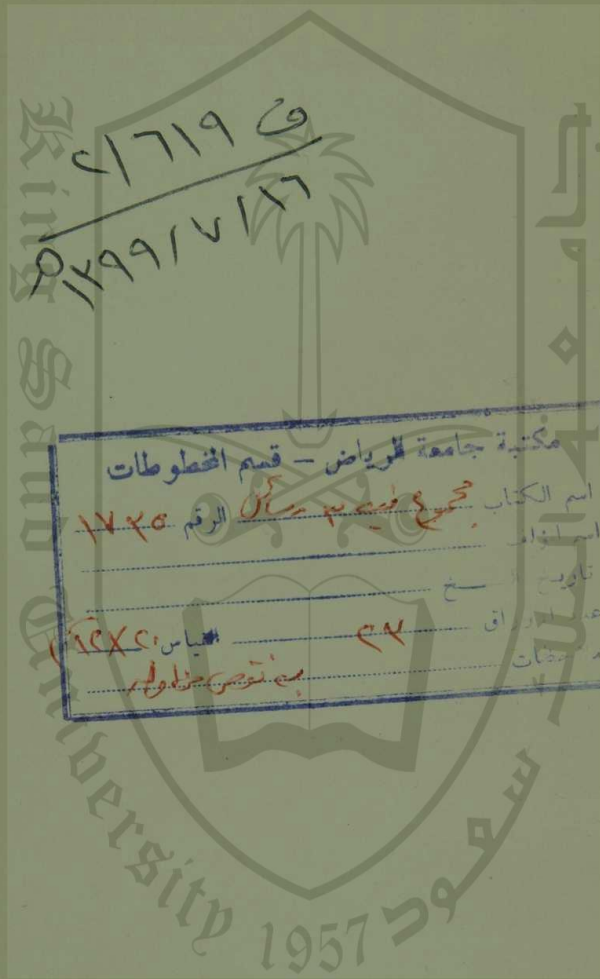 ق ٢١٦١٩
١٣٩٩/٧/١٦ هـ
مكتبة جامعة الرياض - قسم المخطوطات
اسم الكتاب مجموع فيه ٣ رسائل الرقم ١٧٣٥
اسم المؤلف
تاريخ النسخ
عدد الأوراق ٢٣ القياس ٢٠×١٤
به نقص من أوله
King Saud University 1957
جامعة الملك سعود